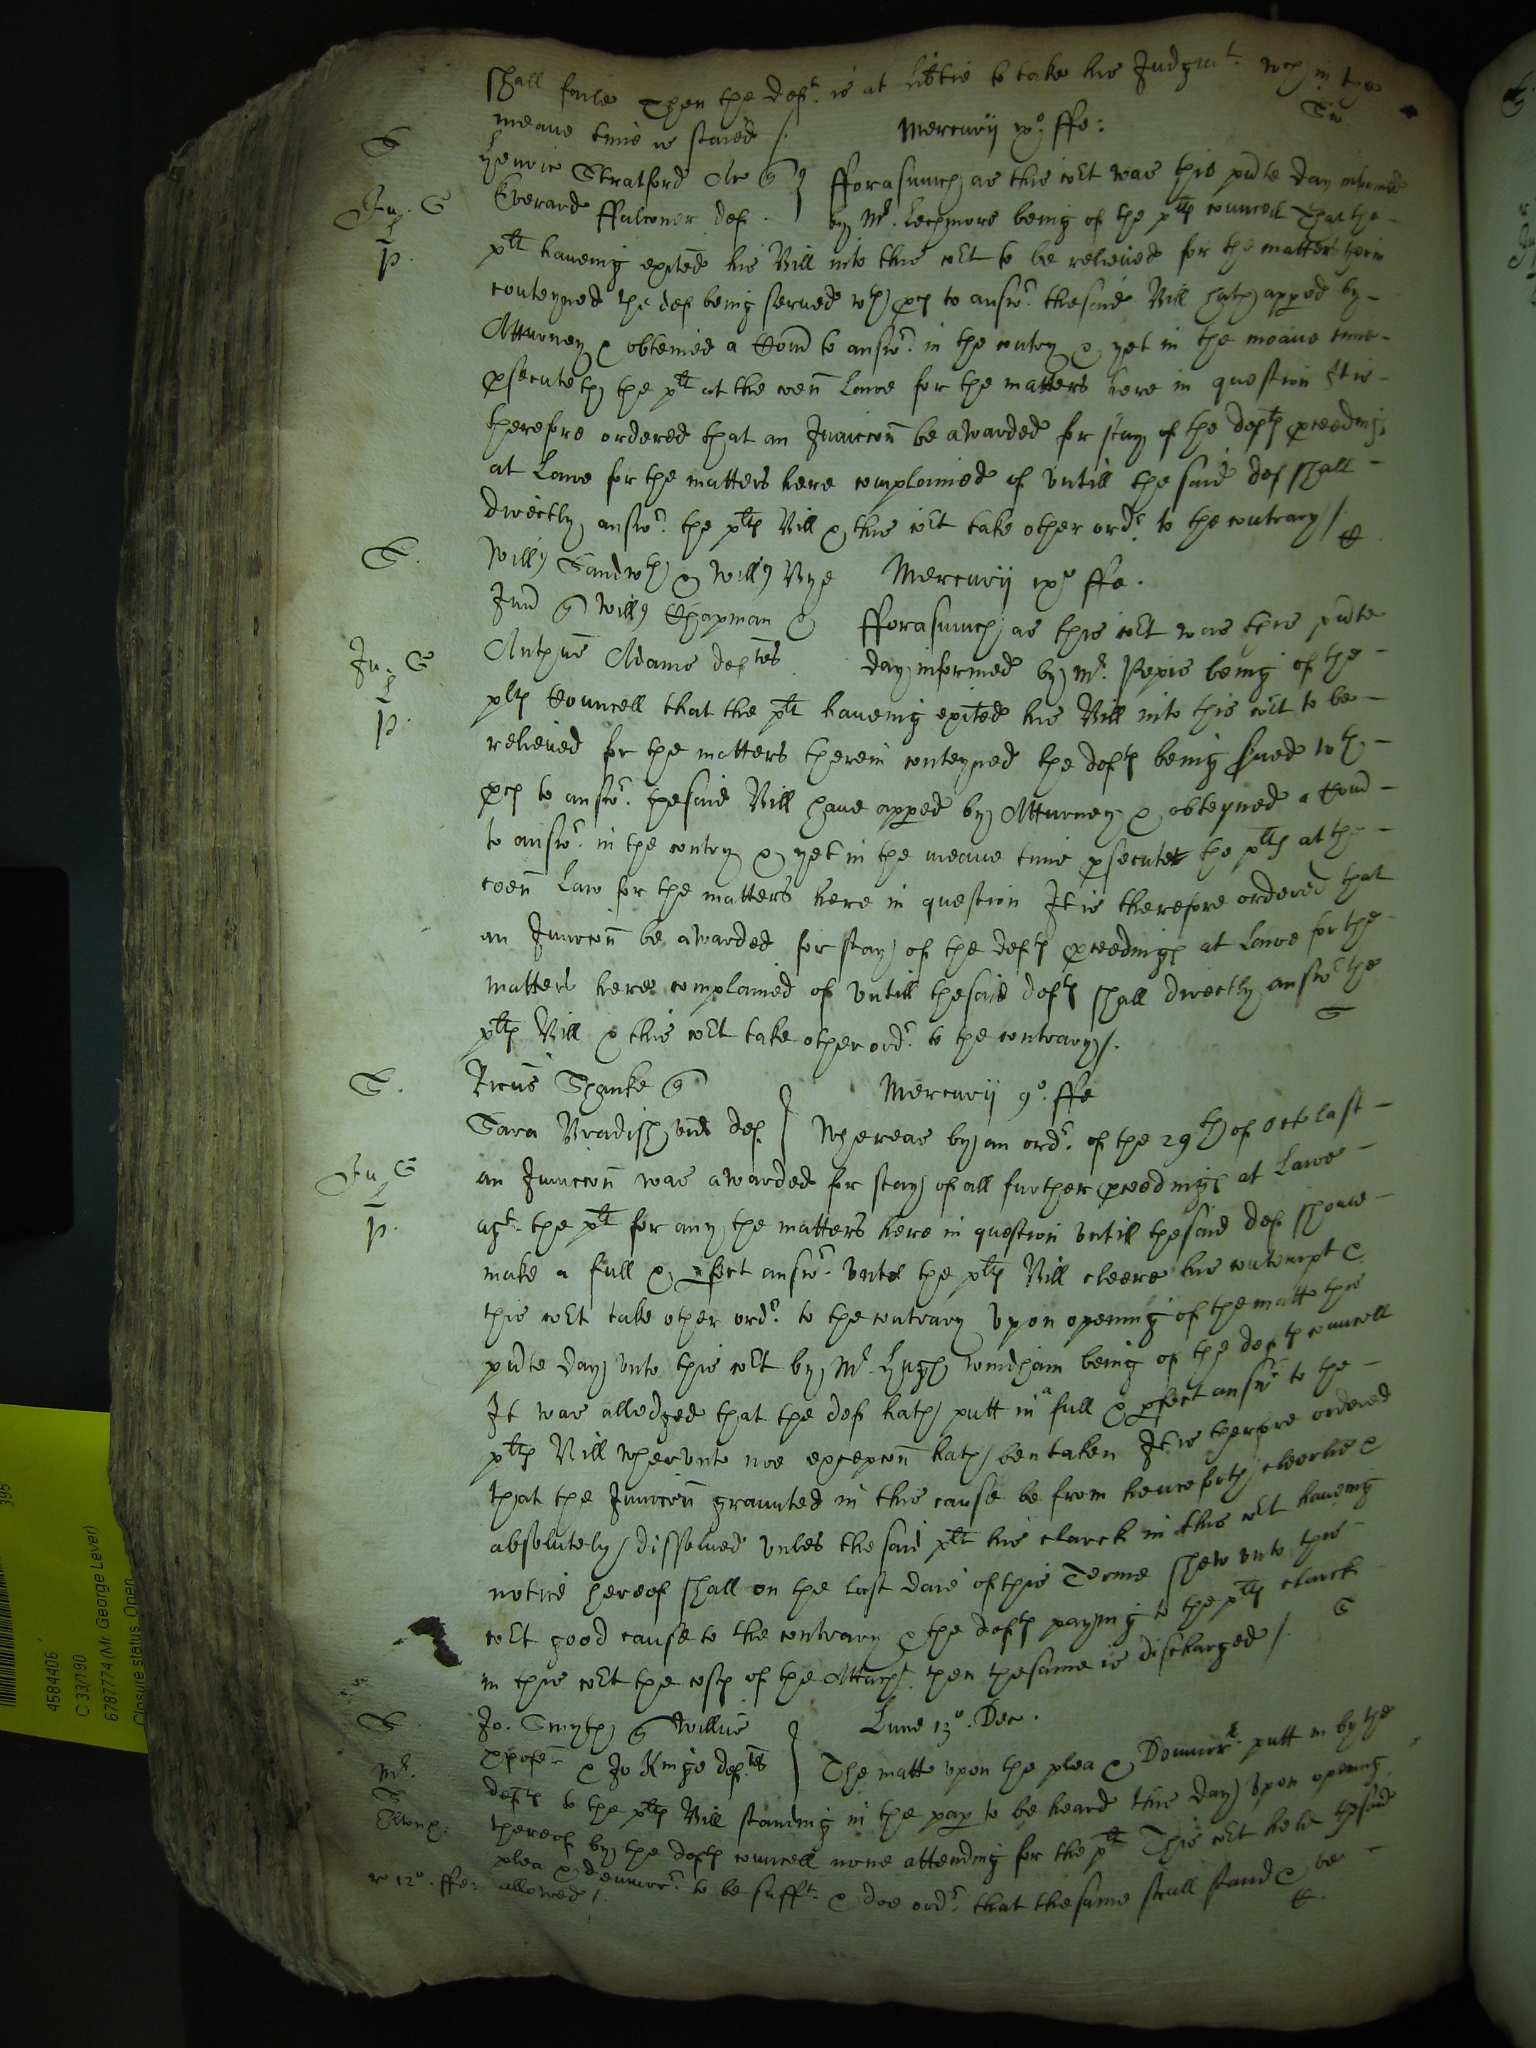 shall faile Then the deft. is at lib'tie to take his Judgmt. wch in the
meane time is staied /.
S
Mercurij ixo. ffe:
Henric Stratford Ar q
Everard ffalconer def.
Jn. S
p.
fforasmuch as this cort was this pn'te day informed
by Mr. Lechmore being of the plts councell That the
plt haveing exited his Bill into this cort to be relieued for the matters therin
conteyned the def being served wth pces to answr. the said Bill hath apped by
Atturney & obteined a Com' to answr. in the contry & yet in the meane time
psecuteth the plt at the com'on Lawe for the matters here in question It is
therefore ordered that an Jniuncc'on be awarded for stay of the defts pceedings
at Lawe for the matters here complained of vntill the said def shall
directly answr. the plts Bill & this cort take other ordr. to the contrary /.
S.
Will'm Sandwth & Will'm Bye
Jun' q Will'm Chapman &
Anth'us Adams deftes
Mercurij ixo ffe.
Jn. S
p.
fforasmuch as this cort was this pn'te
day informed by Mr. Pepis being of the
plts Councell that the plt haveing exited his Bill into this cort to be
relieued for the matters therein conteyned the defts being served wth
pces to answr. the said Bill have apped by Atturney & obteyned a Com'
to answr. in the contry & yet in the meane time psecutes the plts at the
com'on Law for the matters here in question It is therefore ordered that
an Jniuncc'on be awarded for stay of the defts pceedings at Lawe for the
matters here complained of vntill the said defts shall directly answr the
plts Bill & this cort take other ordr. to the contrary /.
S
S.
Ric'us Shanke q
Sara Bradish vid' def.
Mercurij 9o. ffe
Jn. S
p.
Whereas by an ordr. of the 29th of Octo last
an Jniuncc'on was awarded for stay of all further pceedings at Lawe
agt. the plt for any the matters here in question vntill the said def should
make a full & pfect answr. vnto the plts Bill cleere his contempt &
this cort take other ordr. to the contrary Vpon opening of the matter this
pn'te day vnto this cort by Mr. Hugh windham being of the defts councell
It was alledged that the def hath putt in a full & pfect answr to the
plts Bill whervnto noe excepc'on hath ben taken It is therfore ordered
that the Jniuncc'on graunted in this cause be from henceforth cleerlie &
absolutely dissolued vnles the said plt his clarck in this cort haveing
notice hereof shall on the last daie of this Terme shew vnto this
cort good cause to the contrary & the defts paying to the plts clarck
in this cort the costs of the Attachmt. then the same is discharged /.
S
S.
Jo. Smyth q Willus
& Jo Kinge deftes
Lune 13o. Dec.
Mr.
The matter vpon the plea & Demurrr. putt in by the
defts to the plts Bill standing in the pap to be heard this day Vpon opening
thereof by the defts councell none attending for the plt This cort held the said
plea & demurrr. to be sufft. & doe ordr. that the same shall stand & be
allowed /.
r 12o. ffe:
395
4584406
C 33/190
6787774 (Mr. George Lever)
Closure status Open